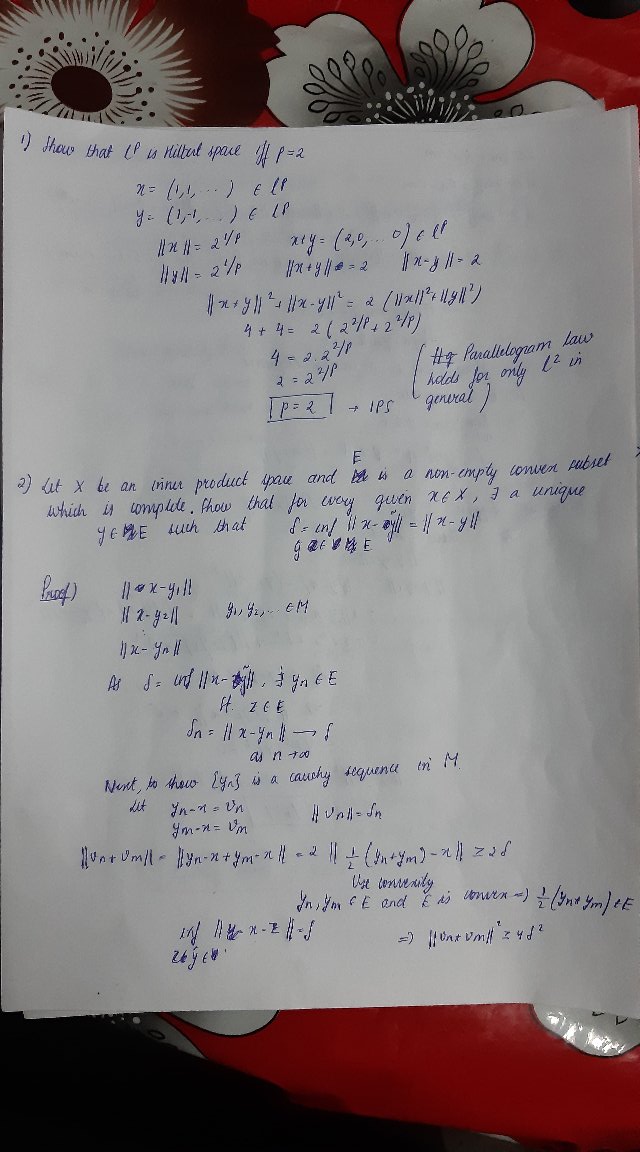 1) Show that lᵖ is Hilbert space iff p=2
x = (1,1, ...) ∈ lᵖ
y = (1,-1, ...) ∈ lᵖ
||x|| = 2^1/p x+y = (2,0,... 0) ∈ lᵖ
||y|| = 2^1/p ||x+y|| = 2 ||x-y|| = 2
||x+y||² + ||x-y||² = 2 (||x||² + ||y||²)
4 + 4 = 2 (2^2/p + 2^2/p)
4 = 2.2^2/p
2 = 2^2/p
p = 2 → IPS
( Parallelogram Law
holds for only l² in
general )
E
2) Let X be an inner product space and is a non-empty convex subset
which is complete. Show that for every given x∈X, ∃ a unique
y ∈ E such that δ = inf ||x-ỹ|| = ||x-y||
ỹ ∈ E
Proof) ||x-y₁||
||x-y₂|| y₁, y₂, .. ∈ M
⋮
||x-yₙ||
As δ = inf ||x-ỹ||, ∃ yₙ ∈ E
st. z ∈ E
δₙ = ||x-yₙ|| → δ
as n→∞
Next, to show {yₙ} is a cauchy sequence in M.
Let yₙ-x = vₙ ||vₙ|| = δₙ
yₘ-x = vₘ
||vₙ+vₘ|| = ||yₙ-x+yₘ-x|| = 2 || 1/2 (yₙ+yₘ) - x || ≥ 2δ
Use convexity
yₙ, yₘ ∈ E and E is convex ⇒ 1/2 (yₙ+yₘ) ∈ E
inf || x-z || = δ ⇒ ||vₙ+vₘ||² ≥ 4δ²